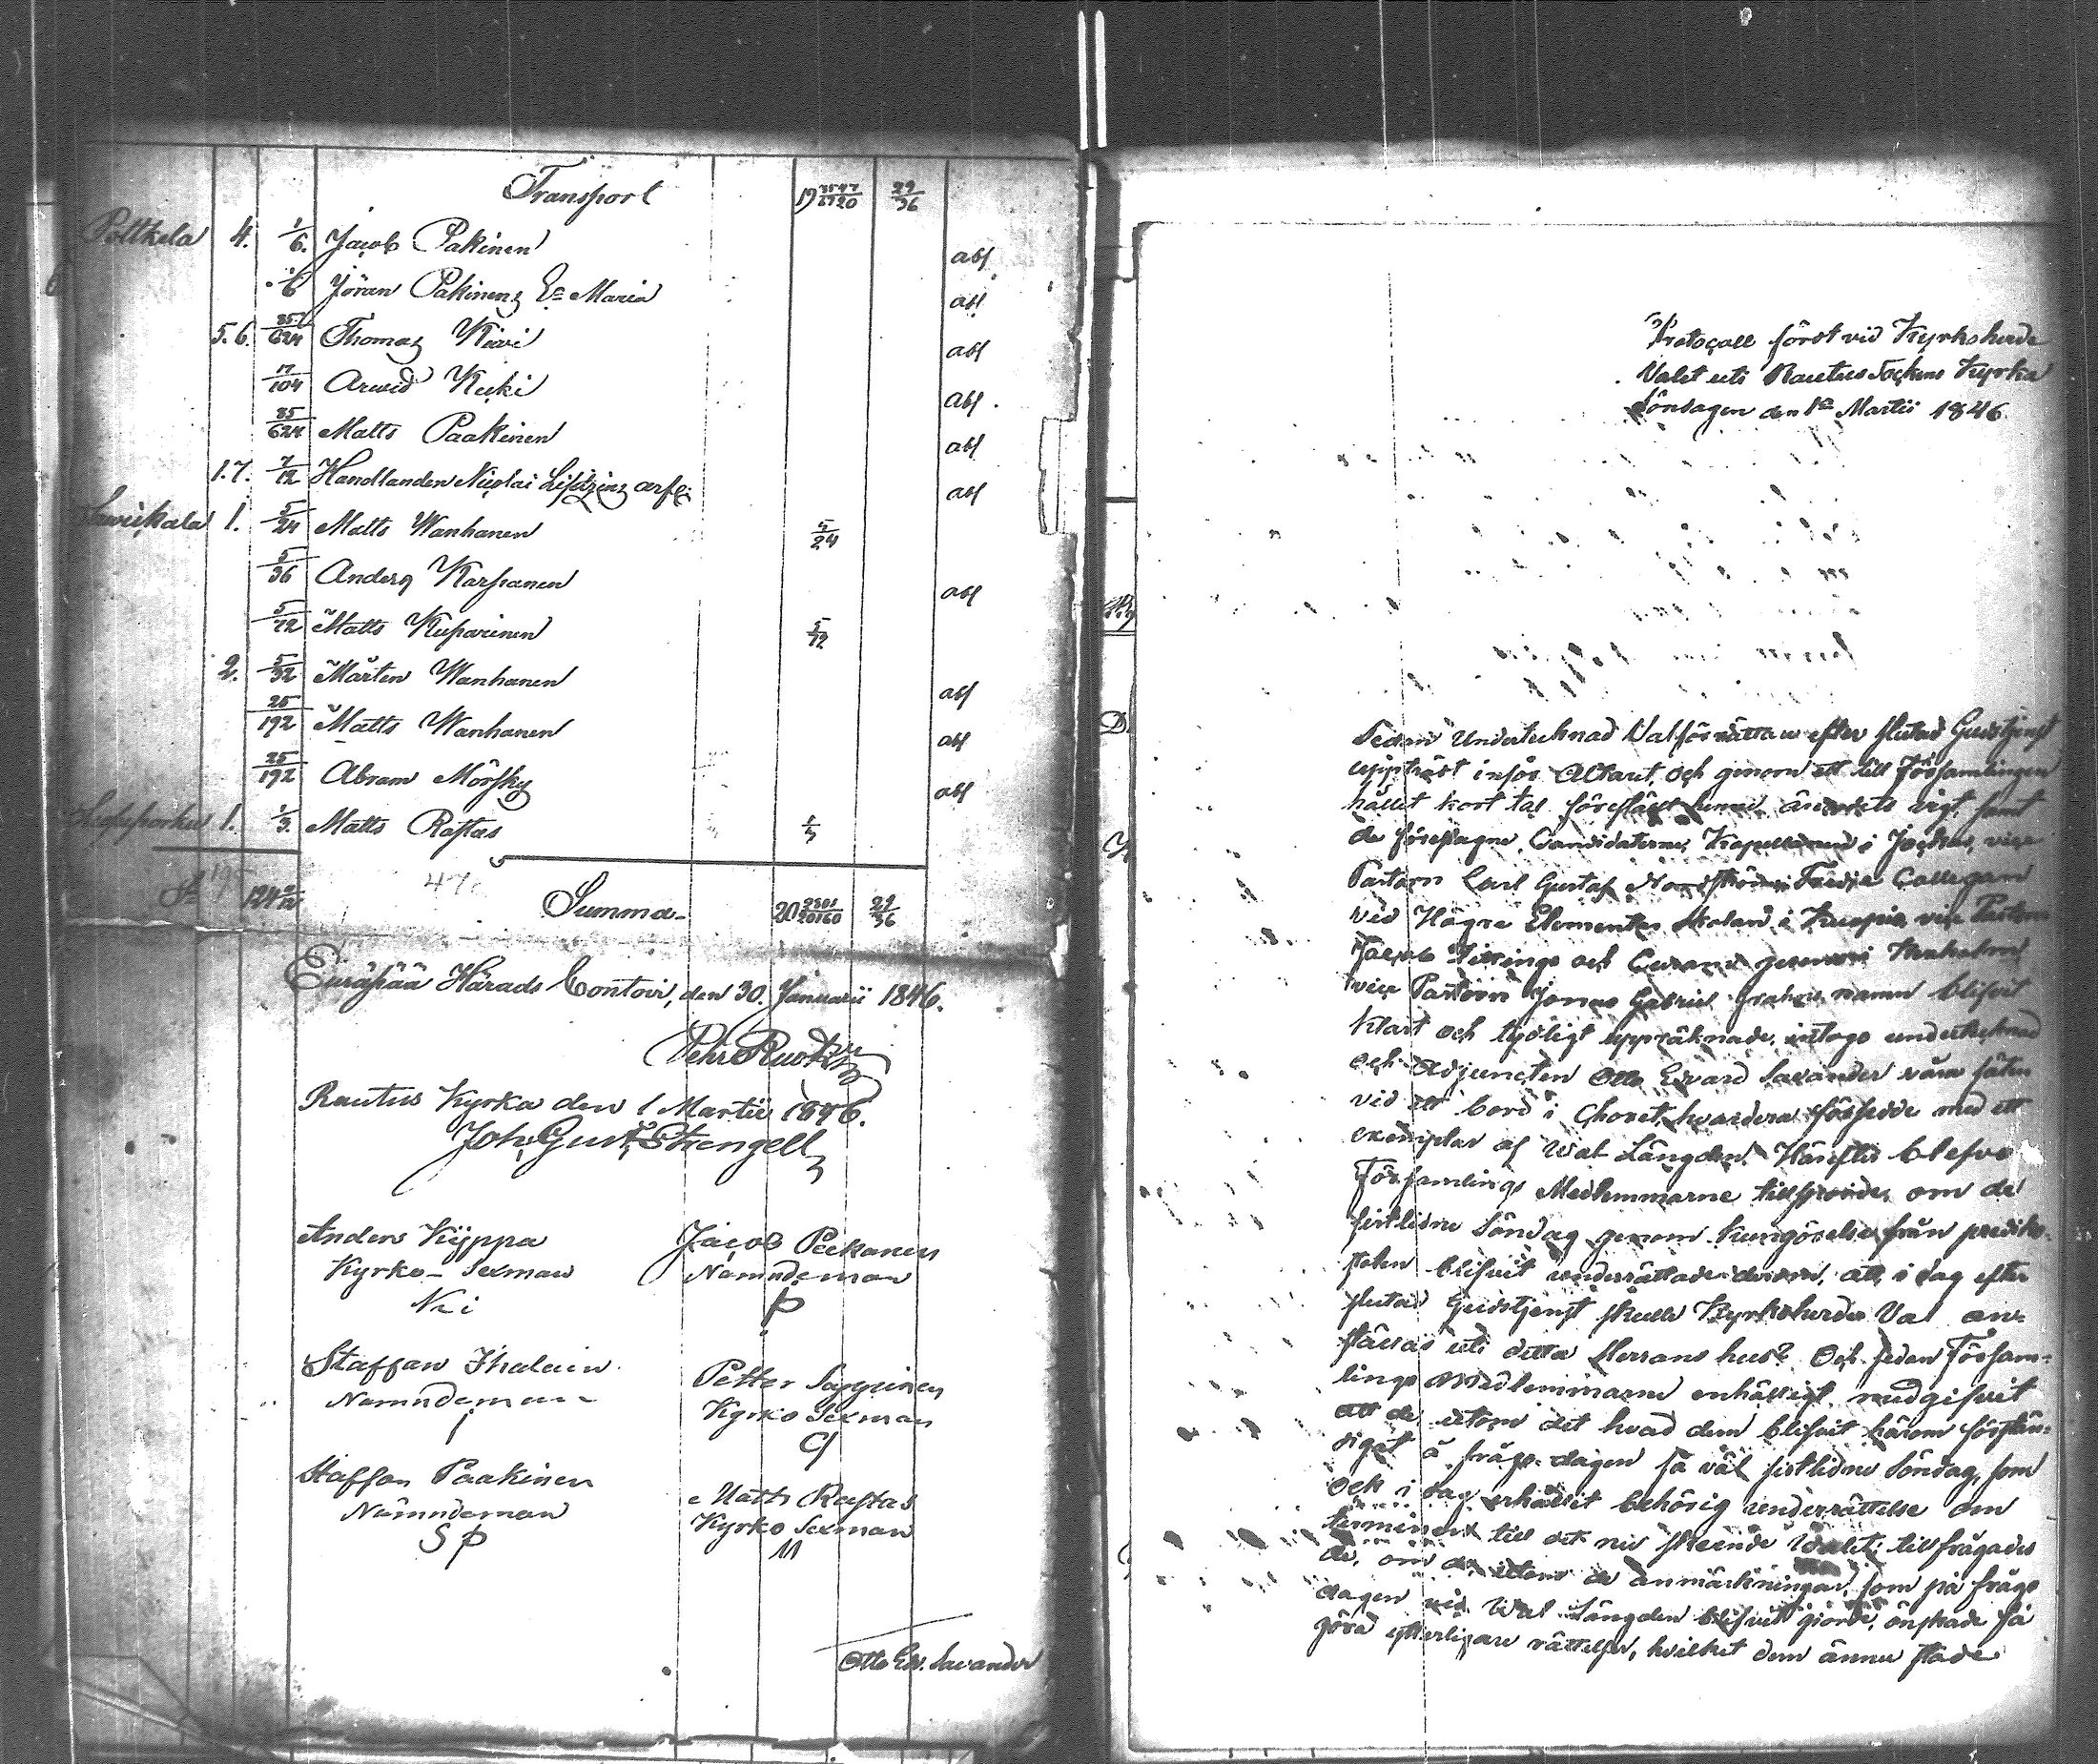 Transport 19 3547/6720 29/36
Pölkelä 4. 1/6. Jacob Pakinen abs
1/6 Jöran Pakinens Ea Maria abs
5.6. 85/624 Thomas Kiwi abs
17/104 Arwid Kuki abs.
85/624 Matts Paakinen abs
1.7. 7/12 Handlanden Nicolai abs
1. 5/24 Matts Wanhanen 5/24
5/36 Anders Karhanen abs
5/72 Matts Kuparinen 5/72
2. 5/32 Mårten Wanhanen abs
25/192 Matts Wanhanen abs
25/192 Abram Mörsky abs
1. 1/3. Matts Rastas 1/3
47
Summa 20 2301/20160 29/36
Euräpää Härads Contoir, den 30. Januarii 1846.
Rautus Kyrka den 1 Martii 1846.
Joh. Gust. Strengell
Anders Kyppa
Kyrko-Sexman
Jacob Peekonen
Nämndeman
Staffan Ihalain
Nämndeman
Petter
Kyrko Sexman
Staffan Paakinen
Nämndeman
S P
Matts Rastas
Kyrko Sexman
M
Otto Edv. Savander
Protocoll fördt vid Kyrkoherde
Valet uti Rautus Sockens Kyrka
Söndagen den 1a Martii 1846.
Sedan Undertecknad Valförrättare efter slutad Gudstjenst
uppträdt inför Altaret och genom ett till Församlingen
hållet kort tal föreställt henne ärendets vigt, samt
de föreslagne Candidaterne, Kapellanen i Jockas, vice
Pastorn Carl Gustaf Tredje Collegan
vid Högre Elementar Skolan i Kuopio vice Pastorn
Jacob och i
vice Pastorn Jonas Gabriel namn blifvit
klart och tydligt uppräknade, intogo undertecknad
och Adjuncten Otto Edvard Savander våra säten
vid ett bord i Choret, hvardera försedde med ett
exemplar af Val Längden. Härefter blefvo
Församlings Medlemmarne tillsporde, om de
sistlidne Söndag genom kungörelse från prediko-
stolen blifvit underrättade derom, att i dag efter
slutad Gudstjenst skulle Kyrkoherde Val an-
ställas uti detta Herrans hus? Och sedan Försam-
lings Medlemmarne enhälligt medgifvit
att de, utom det hvad dem blifvit härom förstän-
digat å fråge-dagen så väl sistlidne Söndag, som
och i dag erhållit behörig underrättelse om
terminen till det nu skeende Valet; tillfrågades
de, om de, utom de anmärkningar, som på fråge
dagen vid Val Längden blifvit gjorde, önskade få
göra ytterligare rättelser, hvilket dem ännu stode